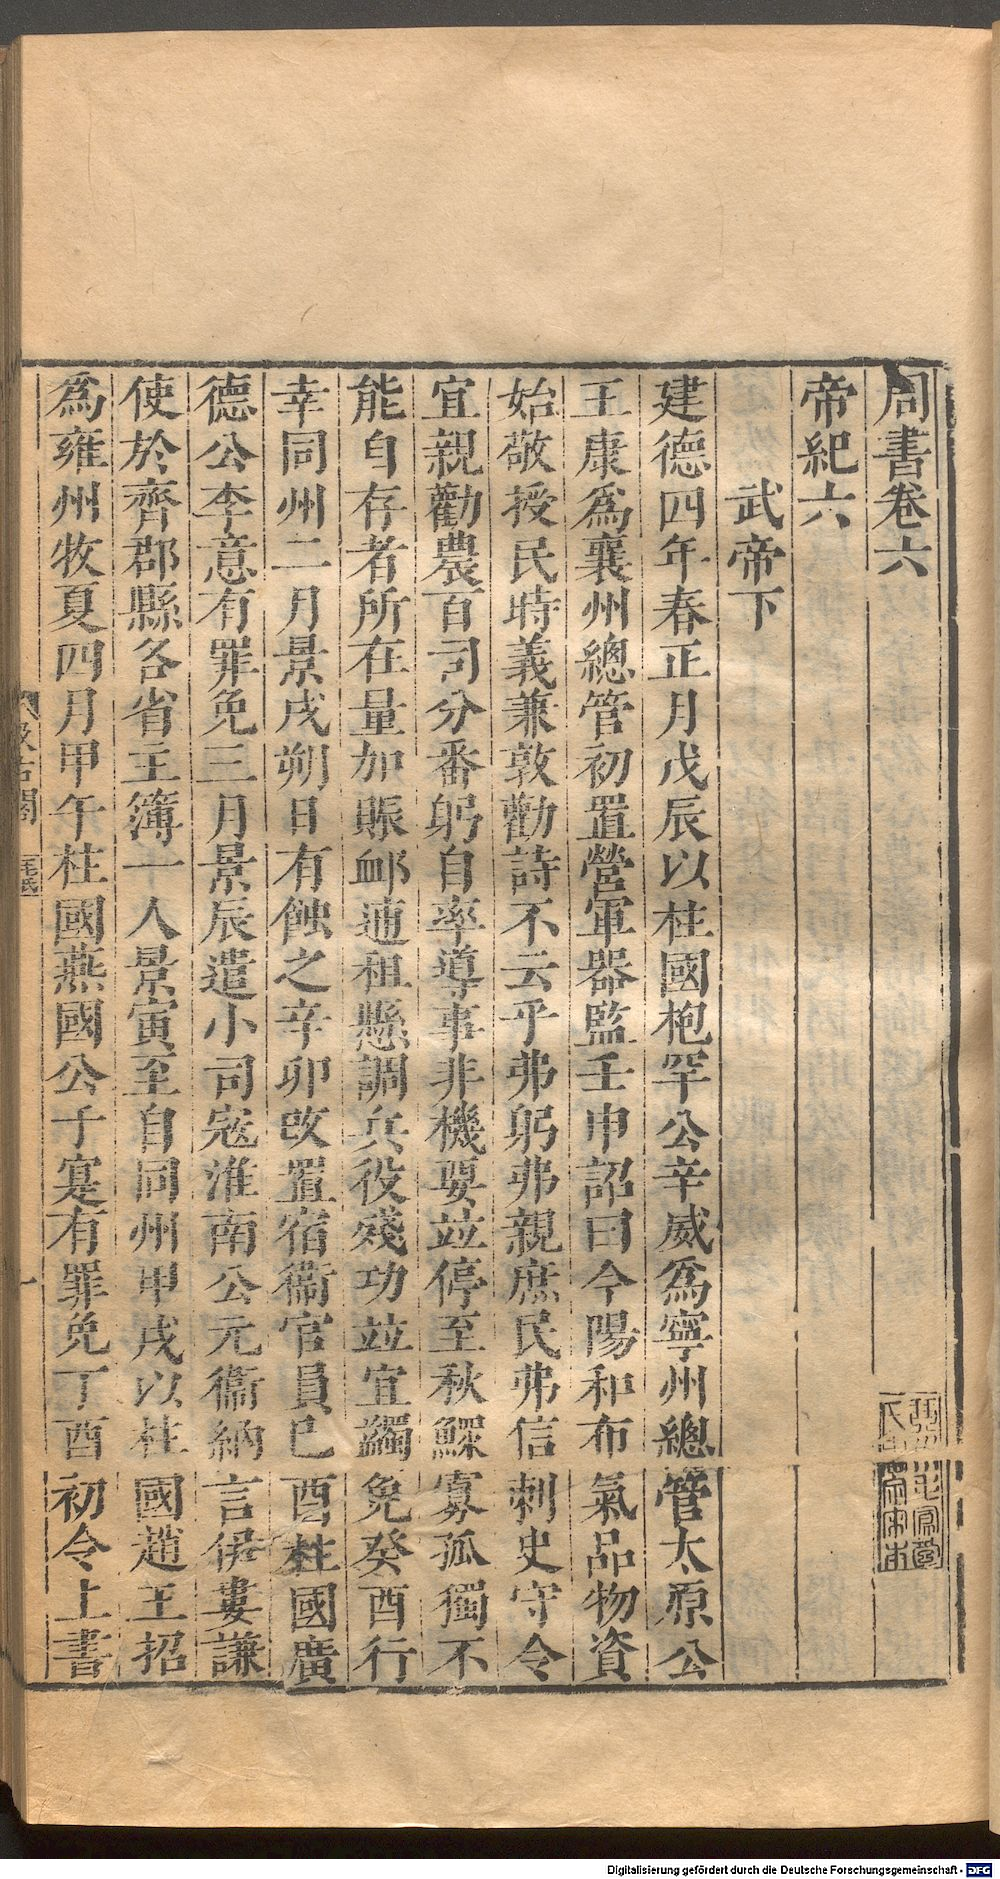 周書卷六
帝紀六
武帝下
建德四年春正月戊辰以柱國枹罕公辛威爲寧州總管太原公
王康爲襄州總管初置營軍器監壬申詔曰今陽和布氣品物資
始敬授民時義兼敦勸詩不云乎弗躬弗親庶民弗信刺史守令
宜親勸農百司分番躬自率導事非機要竝停至秋鰥寡孤獨不
能自存者所在量加賑卹逋租懸調兵役殘功竝宜蠲免癸酉行
幸同州二月景戌朔日有蝕之辛卯改置宿衞官員已酉柱國廣
德公李意有罪免三月景辰遣小司寇淮南公元衞納言伊婁謙
使於齊郡縣各省主簿一人景寅至自同州甲戌以柱國趙王招
爲雍州牧夏四月甲午柱國燕國公于寔有罪免丁酉初令上書
汲古閣
毛氏
一
Digitalisierung gefördert durch die Deutsche Forschungsgemeinschaft - DFG